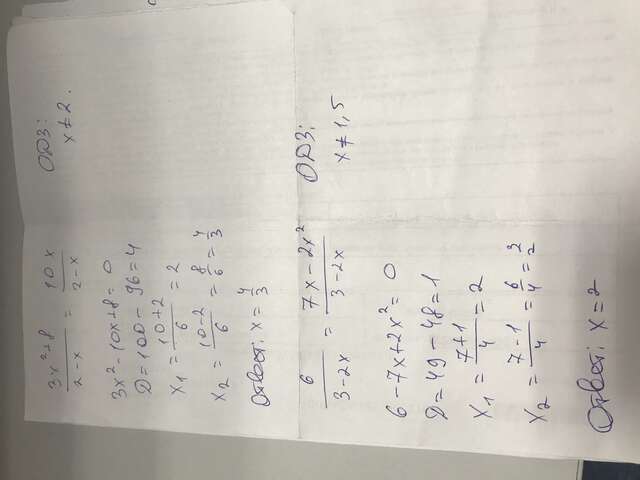 3x²+8 / 2-x = 10x / 2-x ОДЗ:
x≠2.
3x²-10x+8=0
D=100-96=4
x₁=10+2/6=2
x₂=10-2/6=8/6=4/3
Ответ: x=4/3
6 / 3-2x = 7x-2x² / 3-2x ОДЗ:
x≠1,5
6-7x+2x²=0
D=49-48=1
x₁=7+1/4=2
x₂=7-1/4=6/4=3/2
Ответ: x=2